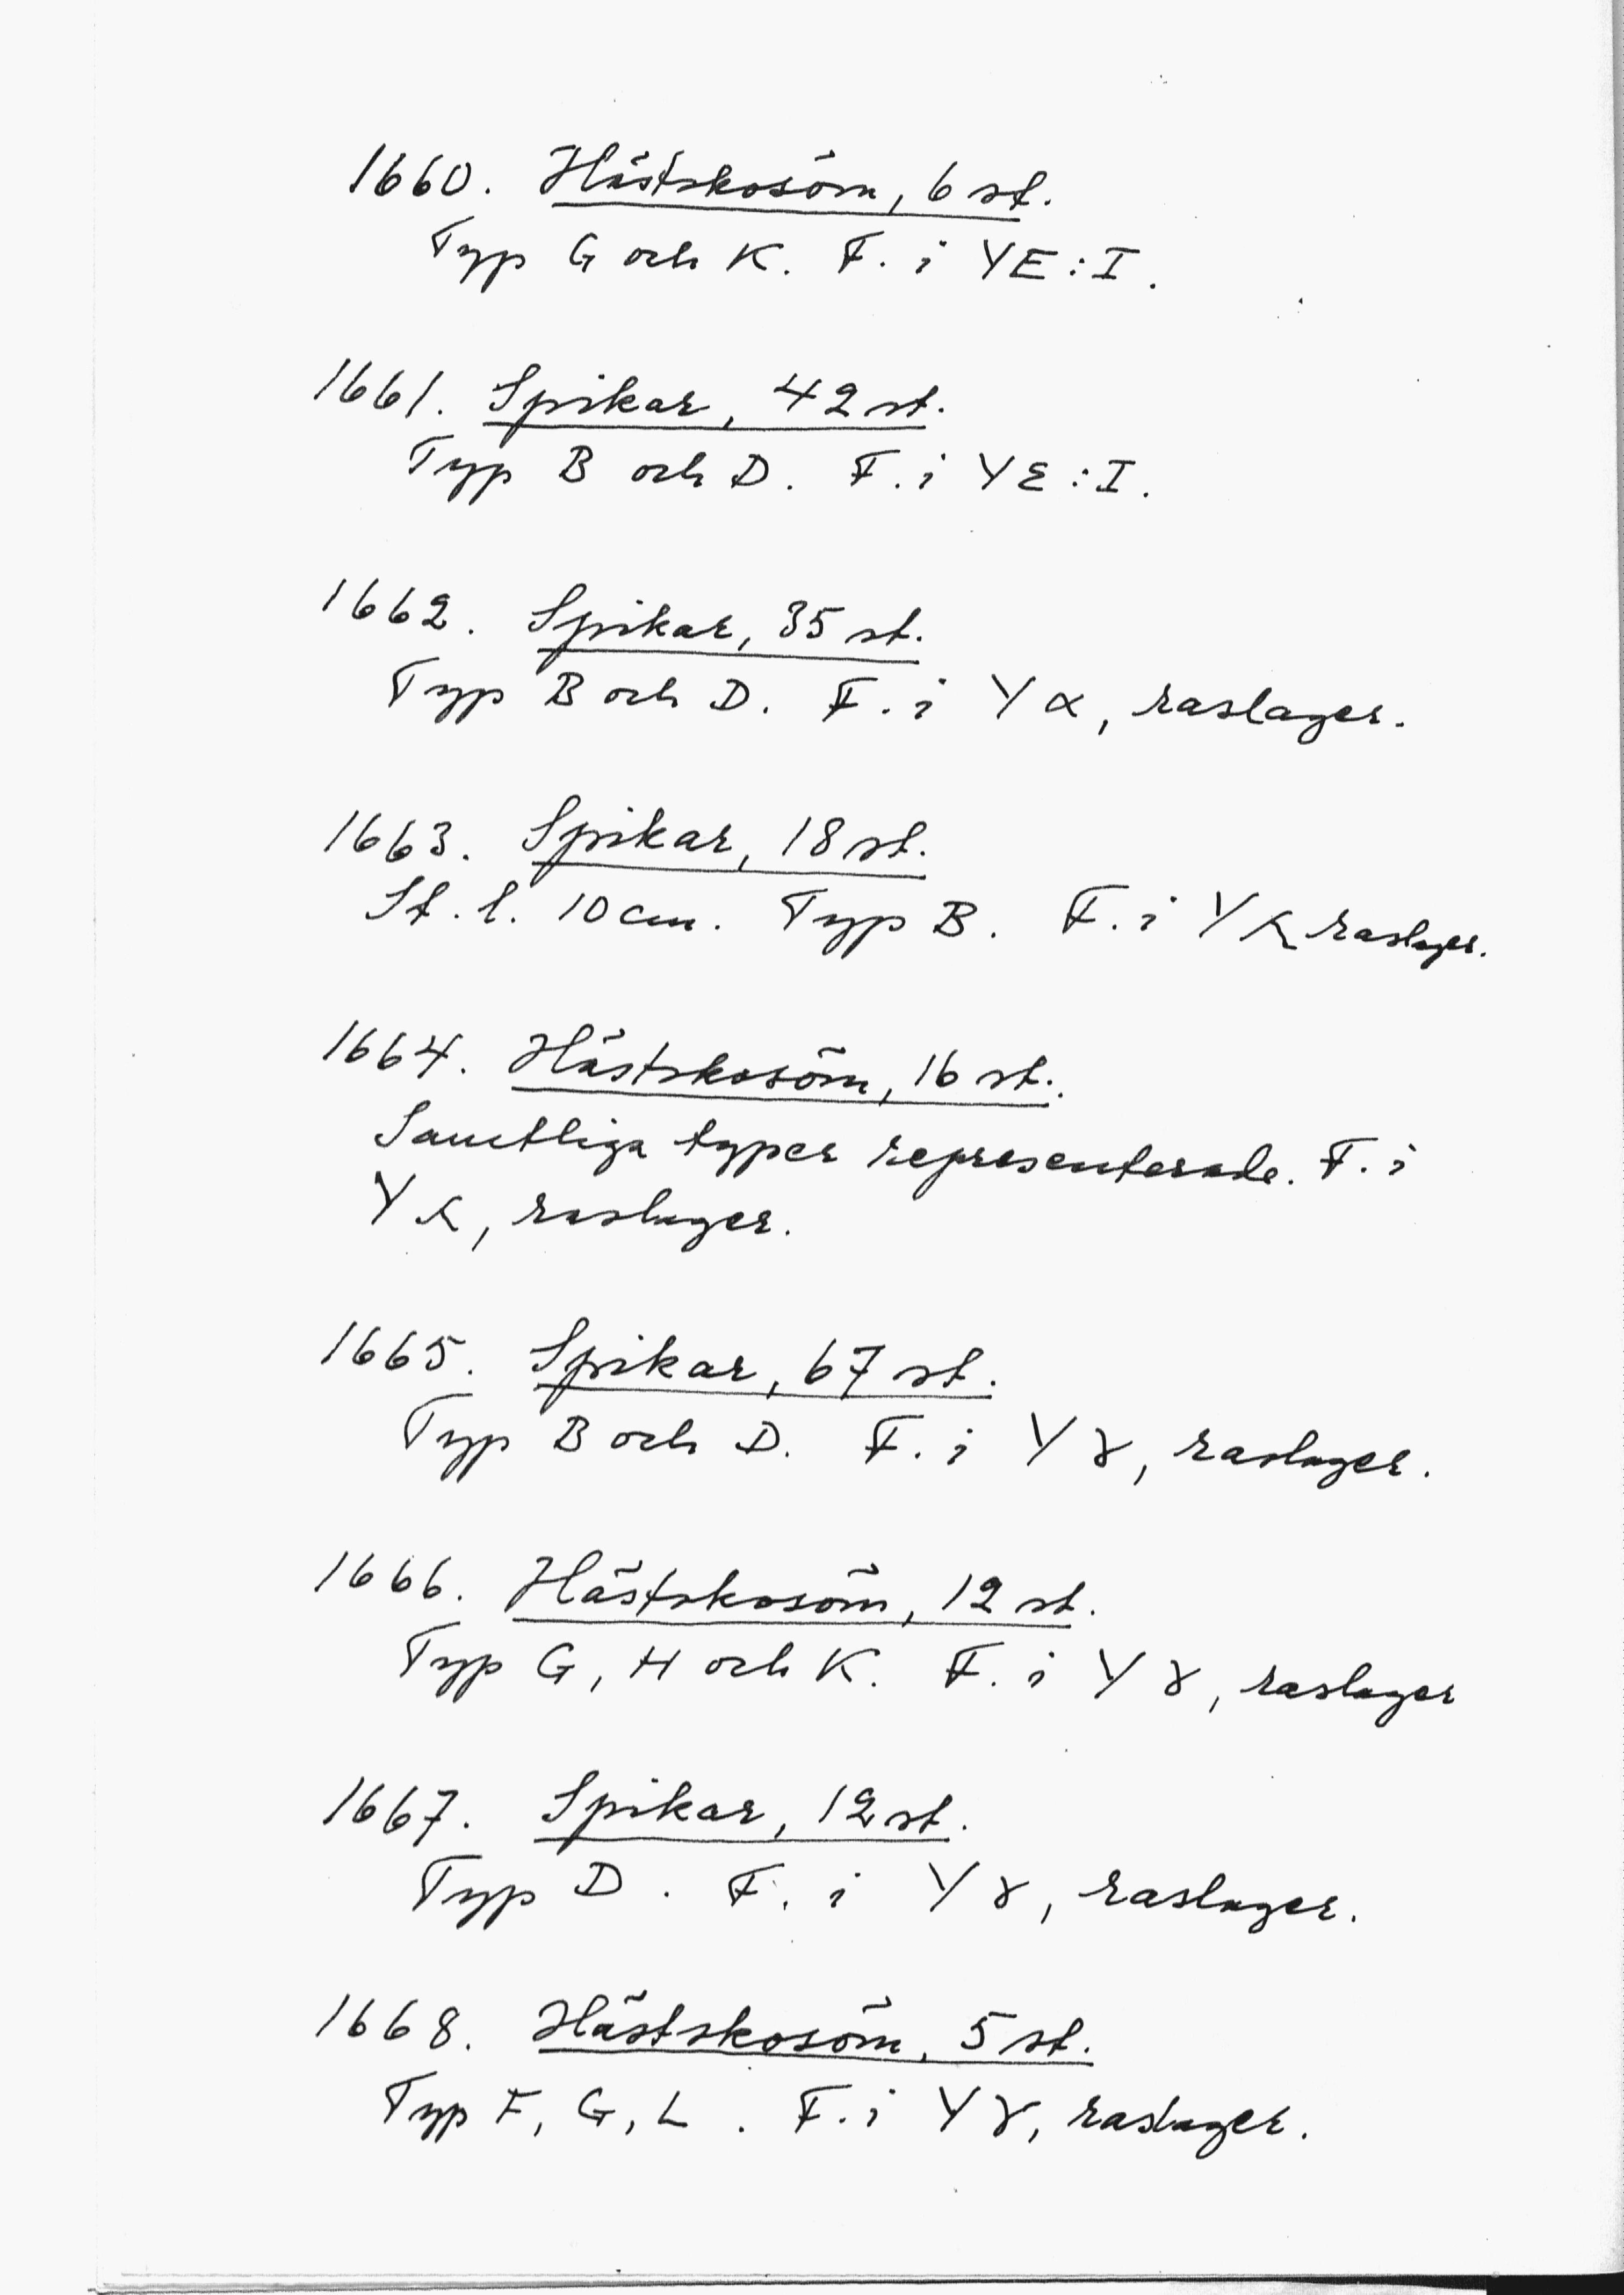 1660. Hästskosöm, 6 st.
Typ G och K. F. i YE:I.
1661. Spikar, 42 st.
Typ B och D. F. i YE:I.
1662. Spikar, 35 st.
Typ B och D. F. i Yα, raslager.
1663. Spikar, 18 st.
St. l. 10 cm. Typ B. F. i Yα raslager.
1664. Hästskosöm, 16 st.
Samtliga typer representerade. F. i
Yα, raslager.
1665. Spikar, 67 st.
Typ B och D. F. i Yγ, raslager.
1666. Hästskosöm, 12 st.
Typ G, H och K. F. i Yγ, raslager
1667. Spikar, 12 st.
Typ D. F. i Yγ, raslager.
1668. Hästskosöm, 5 st.
Typ F, G, L. F. i Yγ, raslager.